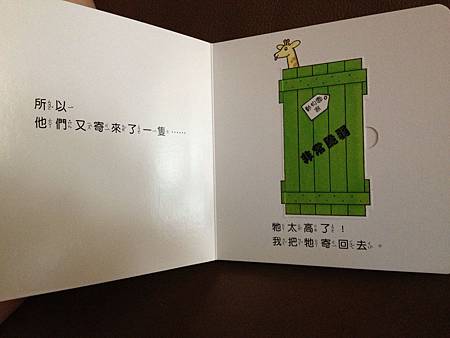 所以
他們又寄來了一隻……
非常脆弱
牠太高了！
我把牠寄回去。